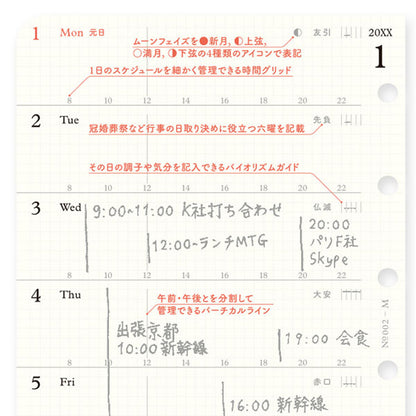 1 Mon 元日
ムーンフェイズを●新月、◐上弦、
○満月、◑下弦の4種類のアイコンで表記
友引
20XX
1
1日のスケジュールを細かく管理できる時間グリッド
8 10 12 14 16 18 20 22
2 Tue
先負
冠婚葬祭など行事の日取り決めに役立つ六曜を記載
8 10 12 14 16 18 20 22
その日の調子や気分を記入できるバイオリズムガイド
3 Wed
仏滅
9:00~11:00 K社打ち合わせ
12:00~ランチMTG
20:00
パリF社
Skype
8 10 12 14 16 18 20 22
4 Thu
大安
午前・午後とを分割して
管理できるバーチカルライン
出張京都
10:00新幹線
19:00 会食
Nº002 – M
8 10 12 14 16 18 20 22
5 Fri
赤口
16:00 新幹線